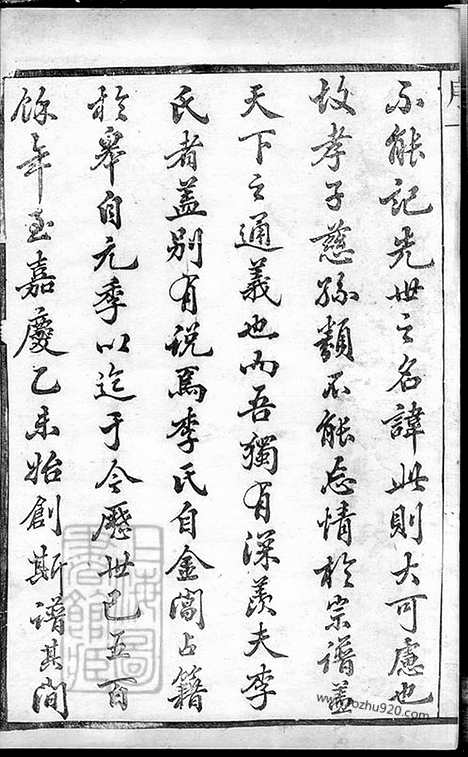 不能記先世之名諱此則大可慮也
故孝子慈孫類不能忘情於宗譜蓋
天下之通義也而吾獨有深羨夫李
氏者蓋别有説焉李氏自金閶占籍
於皋自元季以迄于今歷世已五百
餘年至嘉慶乙未始創斯譜其間
上海圖
書館藏
www.pozhu920.com